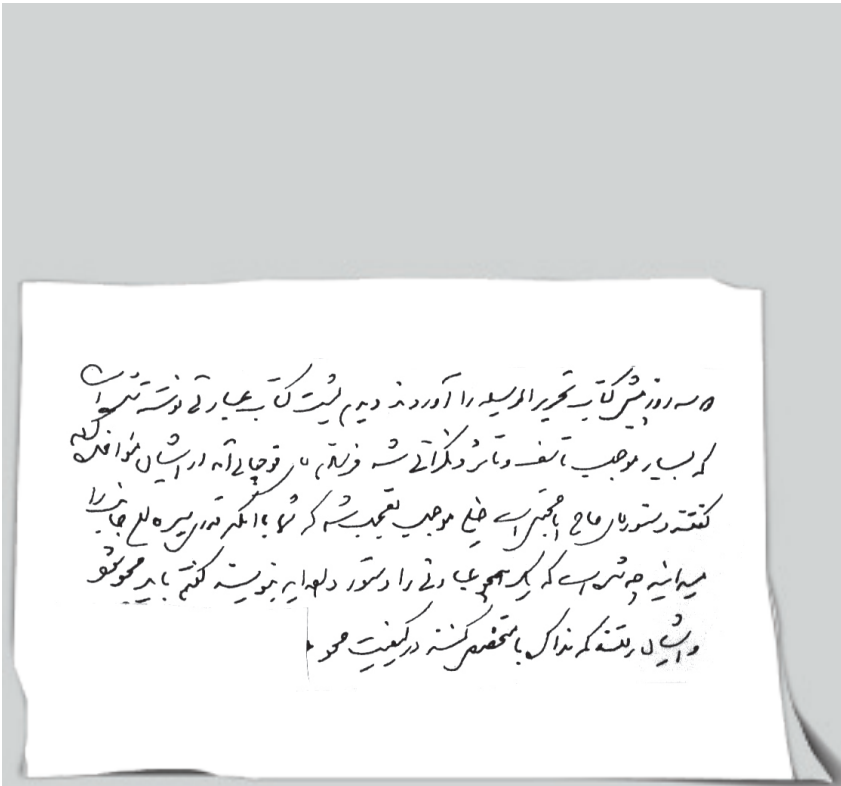 سه روز پیش کتاب تحریر الوسیله را آوردند دیدم پشت کتاب عبارتی نوشته شده است
که بسیار موجب تأسف و تأثر و نگرانی شد فرستادم آقای قوچانی آمد از ایشان مؤاخذه که
گفتند دستور آقای حاج است خیلی موجب تعجب شد که شما با آنکه قدری میر را
میدانید چه شده است که یک همچو عبارتی را دستور داده‌اید بنویسند گفتم باید محو شود
و ایشان رفتند که مذاکره با متخصص کنند در کیفیت محو